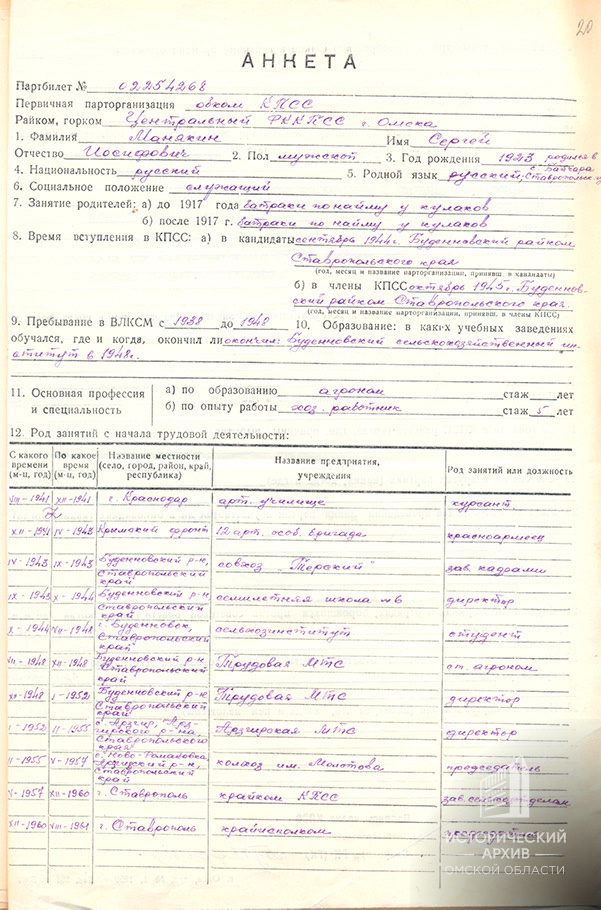 20
АНКЕТА
Партбилет № 02254268
Первичная парторганизация обком КПСС
Райком, горком Центральный РК КПСС г. Омска
1. Фамилия Манякин Имя Сергей
Отчество Иосифович 2. Пол мужской 3. Год рождения 1923 родился в
4. Национальность русский 5. Родной язык русский
6. Социальное положение служащий
7. Занятие родителей: а) до 1917 года батраки по найму у кулаков
б) после 1917 г. батраки по найму у кулаков
8. Время вступления в КПСС: а) в кандидаты сентябрь 1944 г. Буденновский райком
Ставропольского края
(год, месяц и название парторганизации, принявш. в кандидаты)
б) в члены КПСС октябрь 1945 г. Буденнов-
ский райком Ставропольского края.
(год, месяц и название парторганизации, принявш. в члены КПСС)
9. Пребывание в ВЛКСМ с 1938 до 1948 10. Образование: в каких учебных заведениях
обучался, где и когда, окончил ли окончил: Буденновский сельскохозяйственный ин-
ститут в 1948 г.
11. Основная профессия и специальность
а) по образованию агроном стаж лет
б) по опыту работы хоз. работник стаж 5 лет
12. Род занятий с начала трудовой деятельности:
С какого времени (м-ц, год) По какое время (м-ц, год) Название местности (село, город, район, край, республика) Название предприятия, учреждения Род занятий или должность
VIII-1941 XII-1941 г. Краснодар арт. училище курсант
XII-1941 IV-1943 Крымский фронт 12 арт. особ. бригада красноармеец
IV-1943 IX-1943 Буденновский р-н, Ставропольский край совхоз "Терский" зав. кадрами
IX-1943 X-1944 Буденновский р-н Ставропольский край семилетняя школа №6 директор
X-1944 VII-1948 г. Буденновск, Ставропольский край сельхозинститут студент
VII-1948 XII-1948 Буденновский р-н Ставропольский край Трудовая МТС ст. агроном
XII-1948 I-1952 Буденновский р-н Ставропольский край Трудовая МТС директор
I-1952 II-1955 с. Арзгир, Арз-гирского р-на, Ставропольского края Арзгирская МТС директор
II-1955 V-1957 с. Ново-Романовка Арзгирский р-н, Ставропольский край колхоз им. Молотова председатель
V-1957 XII-1960 г. Ставрополь крайком КПСС зав. сельхозотделом
XII-1960 VIII-1961 г. Ставрополь крайисполком
ИСТОРИЧЕСКИЙ
АРХИВ
ОМСКОЙ ОБЛАСТИ